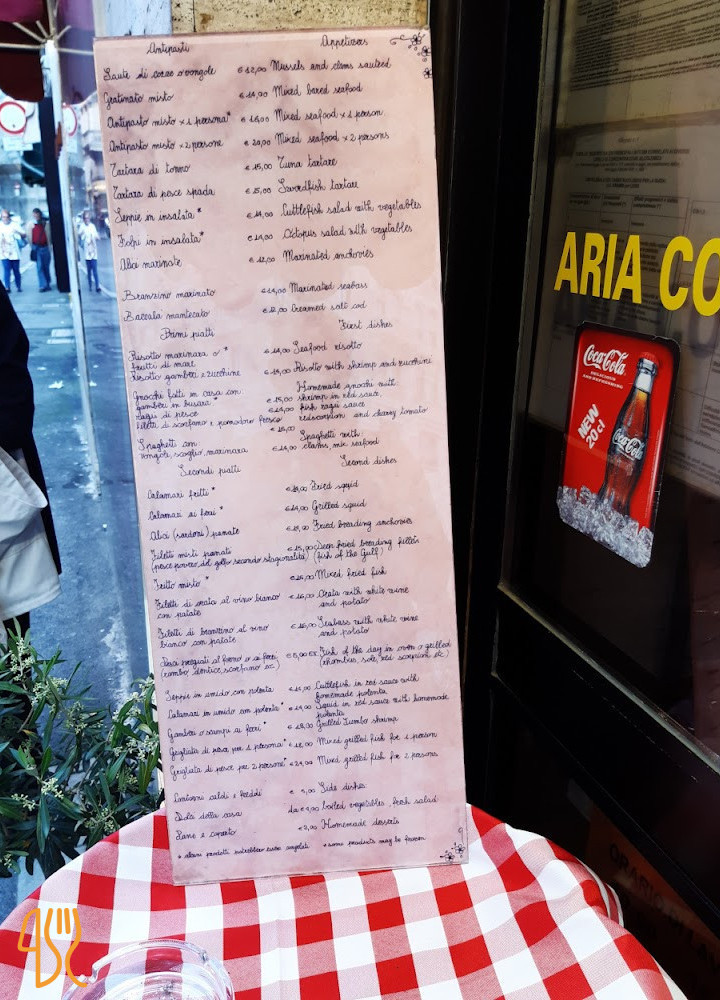 Antipasti Appetizers
Sautè di cozze o vongole € 12,00 Mussels and clams sauteed
Gratinato misto € 14,00 Mixed baked seafood
Antipasto misto x 1 persona* Mixed seafood x 1 person
Antipasto misto x 2 persone € 20,00 Mixed seafood x 2 persons
Tartara di tonno € 15,00 Tuna tartare
Tartara di pesce spada € 15,00 Swordfish tartare
Seppie in insalata* € 14,00 Cuttlefish salad with vegetables
Folpi in insalata* € 14,00 Octopus salad with vegetables
Alici marinate € 12,00 Marinated anchovies
Branzino marinato € 14,00 Marinated seabass
Baccalà mantecato Creamed salt cod
Primi piatti First dishes
Risotto marinara o* € 14,00 Seafood risotto
frutti di mare
Risotto gamberi e zucchine € 14,00 Risotto with shrimp and zucchine
Gnocchi fatti in casa con Homemade gnochi with
gamberi in busara* € 15,00 shrimp in red sauce,
ragù di pesce € 14,00 fish ragu sauce
filetti di scorfano e pomodoro fresco redscorpion and cherry tomato
Spaghetti con Spaghetti with
vongole, scoglio, marinara € 14,00 clams, mix seafood
Secondi piatti Second dishes
Calamari fritti* Fried squid
Calamari ai ferri* € 14,00 Grilled squid
Alici (sardoni) panate Fried breading anchovies
Filetti misti panati € 15,00 Deep fried breading fillets
(pesce povero del golfo secondo stagionalità) (fish of the Gulf)
Fritto misto* Mixed fried fish
Filetti di orata al vino bianco € 16,00 Orata with white wine
con patate and potato
Filetti di branzino al vino € 16,00 Seabass with white wine
bianco con patate and potato
pregiati al forno o ai ferri Fish of the day in oven o grilled
(rombo, dentice, scorfano ec.) (rhombus, sole, red scorpion etc)
Seppie in umido con polenta Cuttlefish in red sauce with
homemade polenta
Calamari in umido con polenta* € 14,00 Squid in red sauce with homemade
polenta
Gamberi o scampi ai ferri* Grilled Jumbo shrimp
Grigliata di pesce per 1 persona* Mixed grilled fish for 1 person
Grigliata di pesce per 2 persone* Mixed grilled fish for 2 persons
Contorni caldi e freddi € 5,00 Side dishes
Dolci della casa boiled vegetables, fresh salad
Pane e coperto Homemade desserts
* alcuni prodotti potrebbero essere surgelati * some products may be frozen
ARIA CO
Coca-Cola
DELICIOUS
AND REFRESHING
NEW
20 cl
Coca-Cola